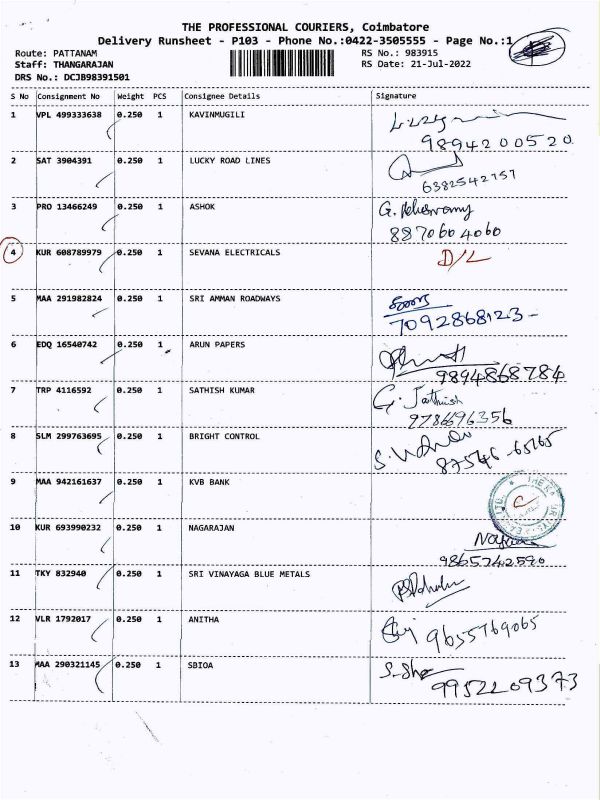 THE PROFESSIONAL COURIERS, Coimbatore
Delivery Runsheet - P103 - Phone No.:0422-3505555 - Page No.:1
Route: PATTANAM RS No.: 983915
Staff: THANGARAJAN RS Date: 21-Jul-2022
DRS No.: DCJB98391501
S No Consignment No Weight PCS Consignee Details Signature
1 VPL 499333638 0.250 1 KAVINMUGILI
9894200520
2 SAT 3904391 0.250 1 LUCKY ROAD LINES
6382542757
3 PRO 13466249 0.250 1 ASHOK G.
8870604060
4 KUR 608789979 0.250 1 SEVANA ELECTRICALS D/L
5 MAA 291982824 0.250 1 SRI AMMAN ROADWAYS
7092868123-
6 EDQ 16540742 0.250 1 ARUN PAPERS
9894868784
7 TRP 4116592 0.250 1 SATHISH KUMAR G. Sathish
9786696356
8 SLM 299763695 0.250 1 BRIGHT CONTROL S.
87546-65165
9 MAA 942161637 0.250 1 KVB BANK
10 KUR 693990232 0.250 1 NAGARAJAN
9865742590
11 TKY 832940 0.250 1 SRI VINAYAGA BLUE METALS
12 VLR 1792017 0.250 1 ANITHA 9655769065
13 MAA 290321145 0.250 1 SBIOA
9952209373